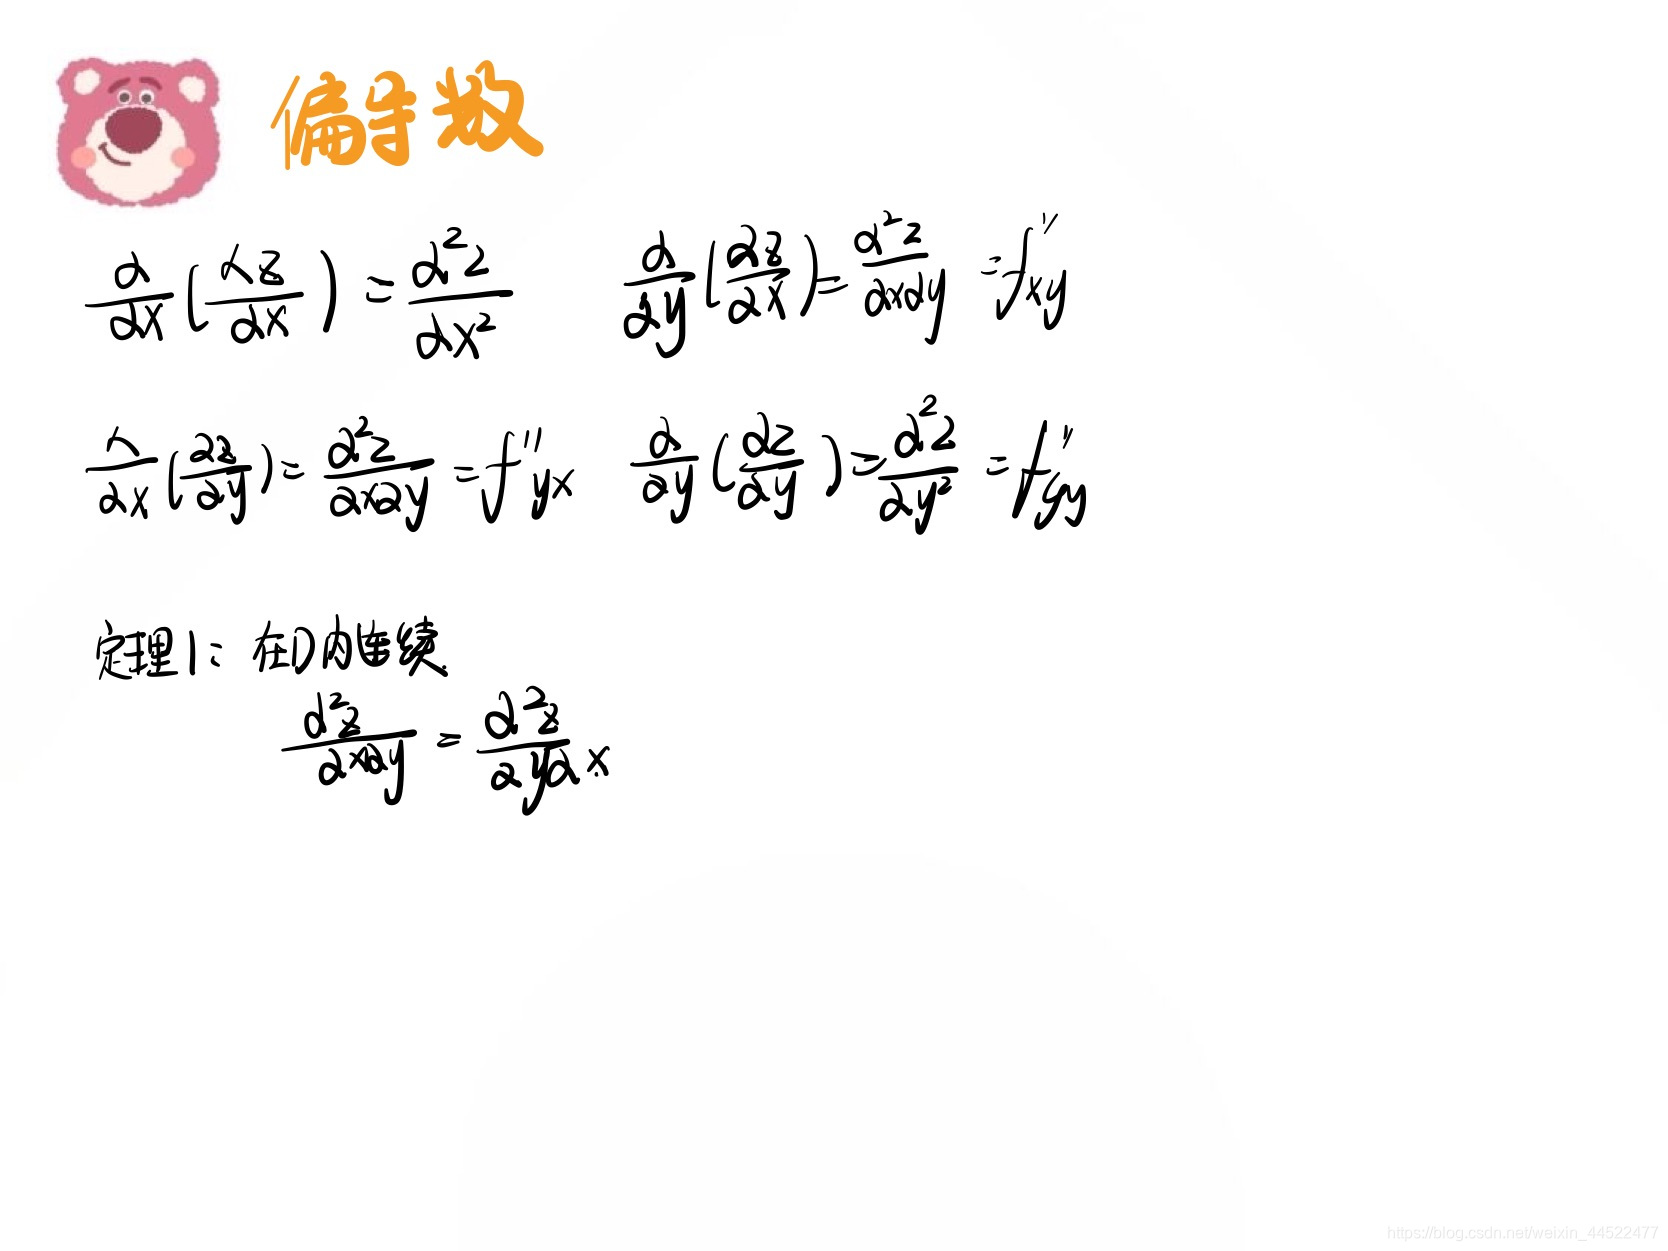 偏导数
∂/∂x (∂z/∂x) = ∂²z/∂x² ∂/∂y (∂z/∂x) = ∂²z/∂x∂y = f''xy
∂/∂x (∂z/∂y) = ∂²z/∂x∂y = f''yx ∂/∂y (∂z/∂y) = ∂²z/∂y² = f''yy
定理1: 在D内连续.
∂²z/∂x∂y = ∂²z/∂y∂x
https://blog.csdn.net/weixin_44522477